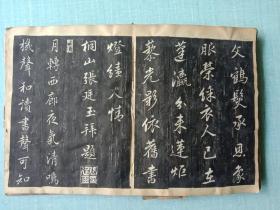 父鶴髮承恩家
服榮綵衣人已在
蓬瀛分來蓮炬
藜光影依舊書
燈繞人情
桐山張廷玉拜題
月轉西廊夜氣清鳴
機聲和讀書聲可知